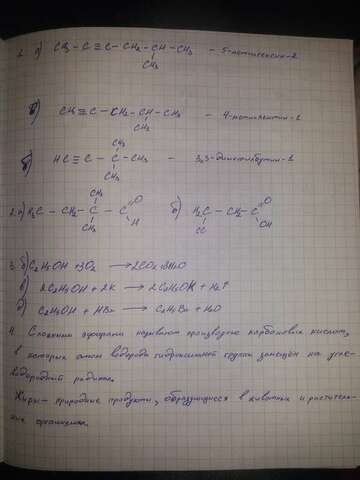 1. а) CH₃ - C ≡ C - CH₂ - CH - CH₃ - 5-метилгексин-2
CH₃
в) CH ≡ C - CH₂ - CH - CH₃ - 4-метилпентин-1
CH₃
CH₃
б) HC ≡ C - C - CH₃ - 3,3-диметилбутин-1
CH₃
CH₃
2. а) H₃C - CH₂ - C - C O H б) H₂C - CH₂ - C O OH
CH₃ Cl
3. б) C₂H₅OH + 3O₂ → 2CO₂ + 3H₂O
в) 2C₂H₅OH + 2K → 2C₂H₅OK + H₂↑
д) C₂H₅OH + HBr → C₂H₅Br + H₂O
4. Сложными эфирами называют производные карбоновых кислот,
в которых атом водорода гидроксильной группы замещён на угле-
водородный радикал.
Жиры - природные продукты, образующиеся в животных и раститель-
ных организмах.